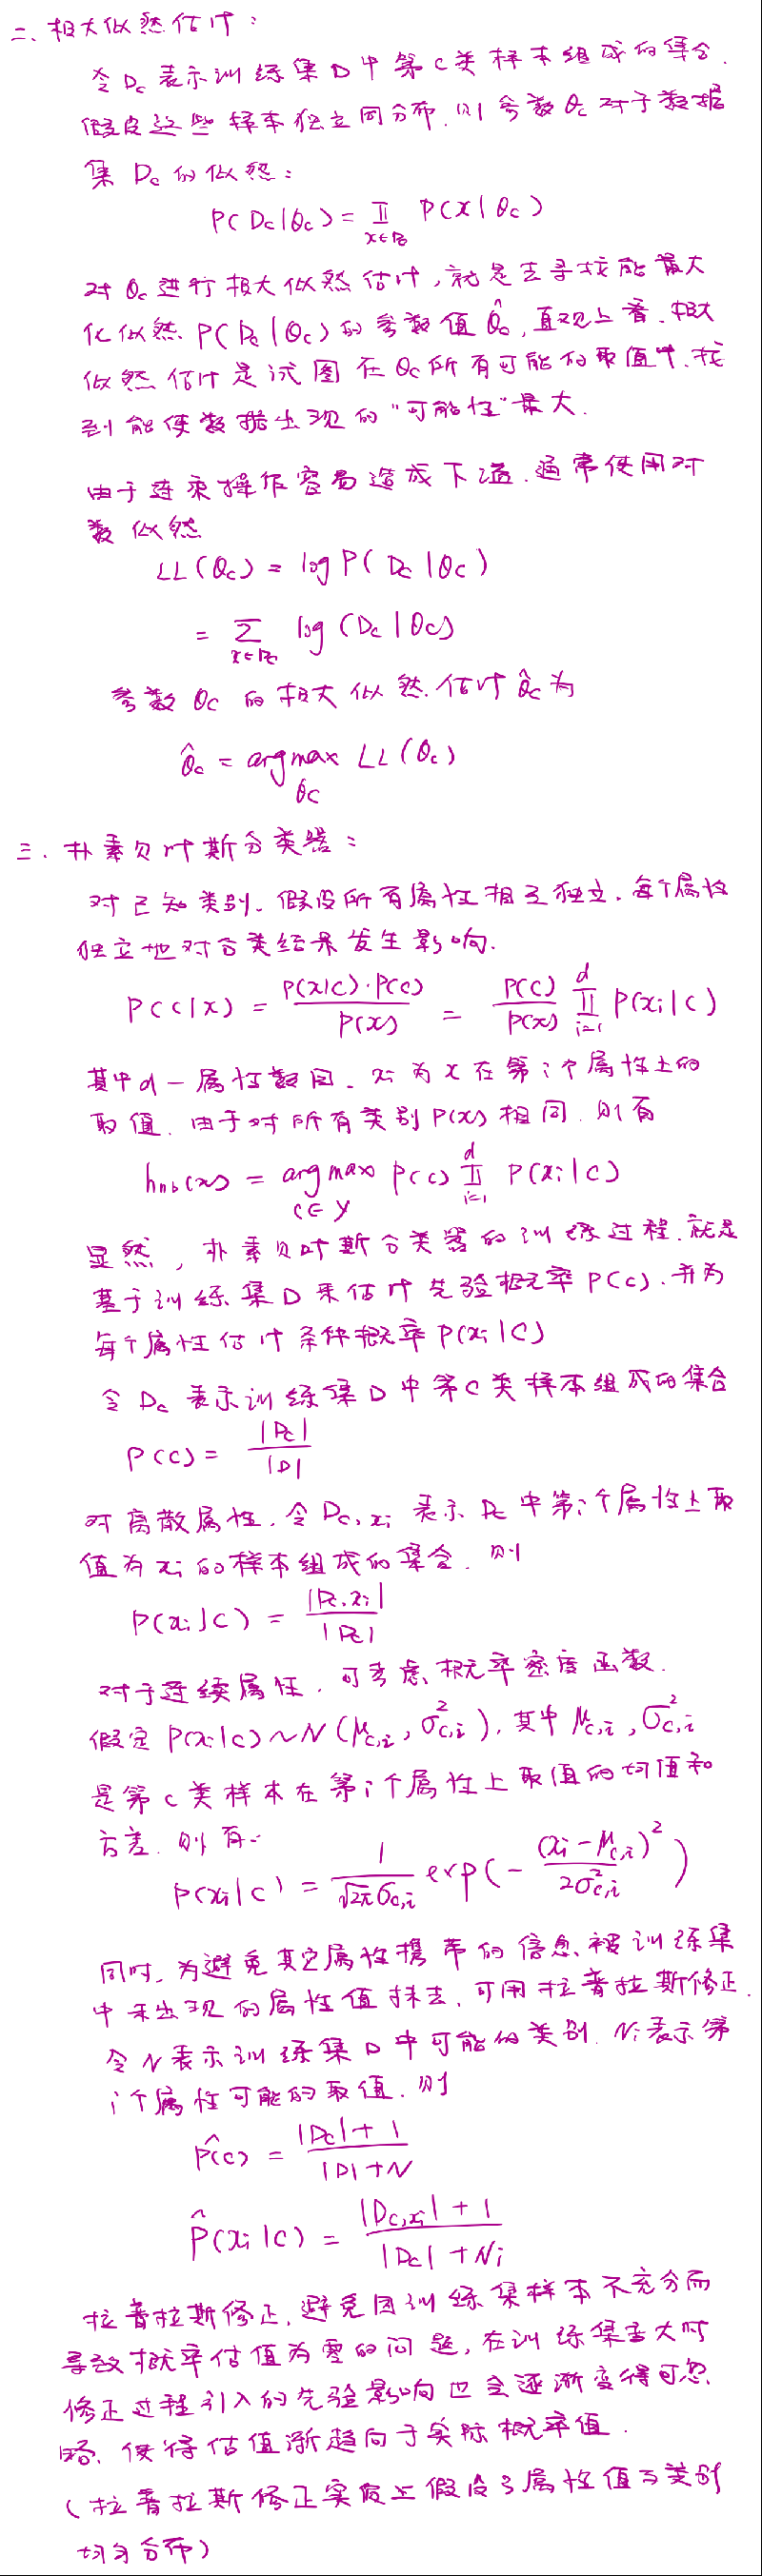 二、极大似然估计：
令 Dc 表示训练集 D 中第 c 类样本组成的集合.
假设这些样本独立同分布.则参数 θc 对于数据
集 Dc 的似然：
P(Dc|θc) = ∏_{x∈Dc} P(x|θc)
对 θc 进行极大似然估计，就是去寻找能最大
化似然 P(Dc|θc) 的参数值 θ̂c，直观上看.极大
似然估计是试图在 θc 所有可能的取值中.找
到能使数据出现的“可能性”最大.
由于连乘操作容易造成下溢.通常使用对
数似然
LL(θc) = log P(Dc|θc)
= ∑_{x∈Dc} log(Dc|θc)
参数 θc 的极大似然.估计 θ̂c 为
θ̂c = argmax_{θc} LL(θc)
三、朴素贝叶斯分类器：
对已知类别.假设所有属性相互独立.每个属性
独立地对分类结果发生影响.
P(c|x) = P(x|c)·P(c) / P(x) = P(c)/P(x) ∏_{i=1}^{d} P(xi|c)
其中 d — 属性数目、xi 为 x 在第 i 个属性上的
取值.由于对所有类别 P(x) 相同.则有
hnb(x) = argmax_{c∈y} P(c) ∏_{i=1}^{d} P(xi|c)
显然，朴素贝叶斯分类器的训练过程.就是
基于训练集 D 来估计先验概率 P(c).并为
每个属性估计条件概率 P(xi|c)
令 Dc 表示训练集 D 中第 c 类样本组成的集合
P(c) = |Dc| / |D|
对离散属性.令 Dc,xi 表示 Dc 中第 i 个属性上取
值为 xi 的样本组成的集合.则
P(xi|c) = |Dc,xi| / |Dc|
对于连续属性.可考虑概率密度函数.
假定 P(xi|c) ~ N(μc,i, σ²c,i), 其中 μc,i, σ²c,i
是第 c 类样本在第 i 个属性上取值的均值和
方差.则有:
P(xi|c) = 1/(√2π σc,i) exp(-(xi-μc,i)²/(2σ²c,i))
同时.为避免其它属性携带的信息.被训练集
中未出现的属性值抹去.可用拉普拉斯修正.
令 N 表示训练集 D 中可能的类别.Ni 表示第
i 个属性可能的取值.则
P̂(c) = (|Dc|+1) / (|D|+N)
P̂(xi|c) = (|Dc,xi|+1) / (|Dc|+Ni)
拉普拉斯修正.避免因训练集样本不充分而
导致概率估值为零的问题，在训练集变大时
修正过程引入的先验影响也会逐渐变得可忽
略.使得估值渐趋向于实际概率值.
(拉普拉斯修正实质上假设了属性值与类别
均匀分布)